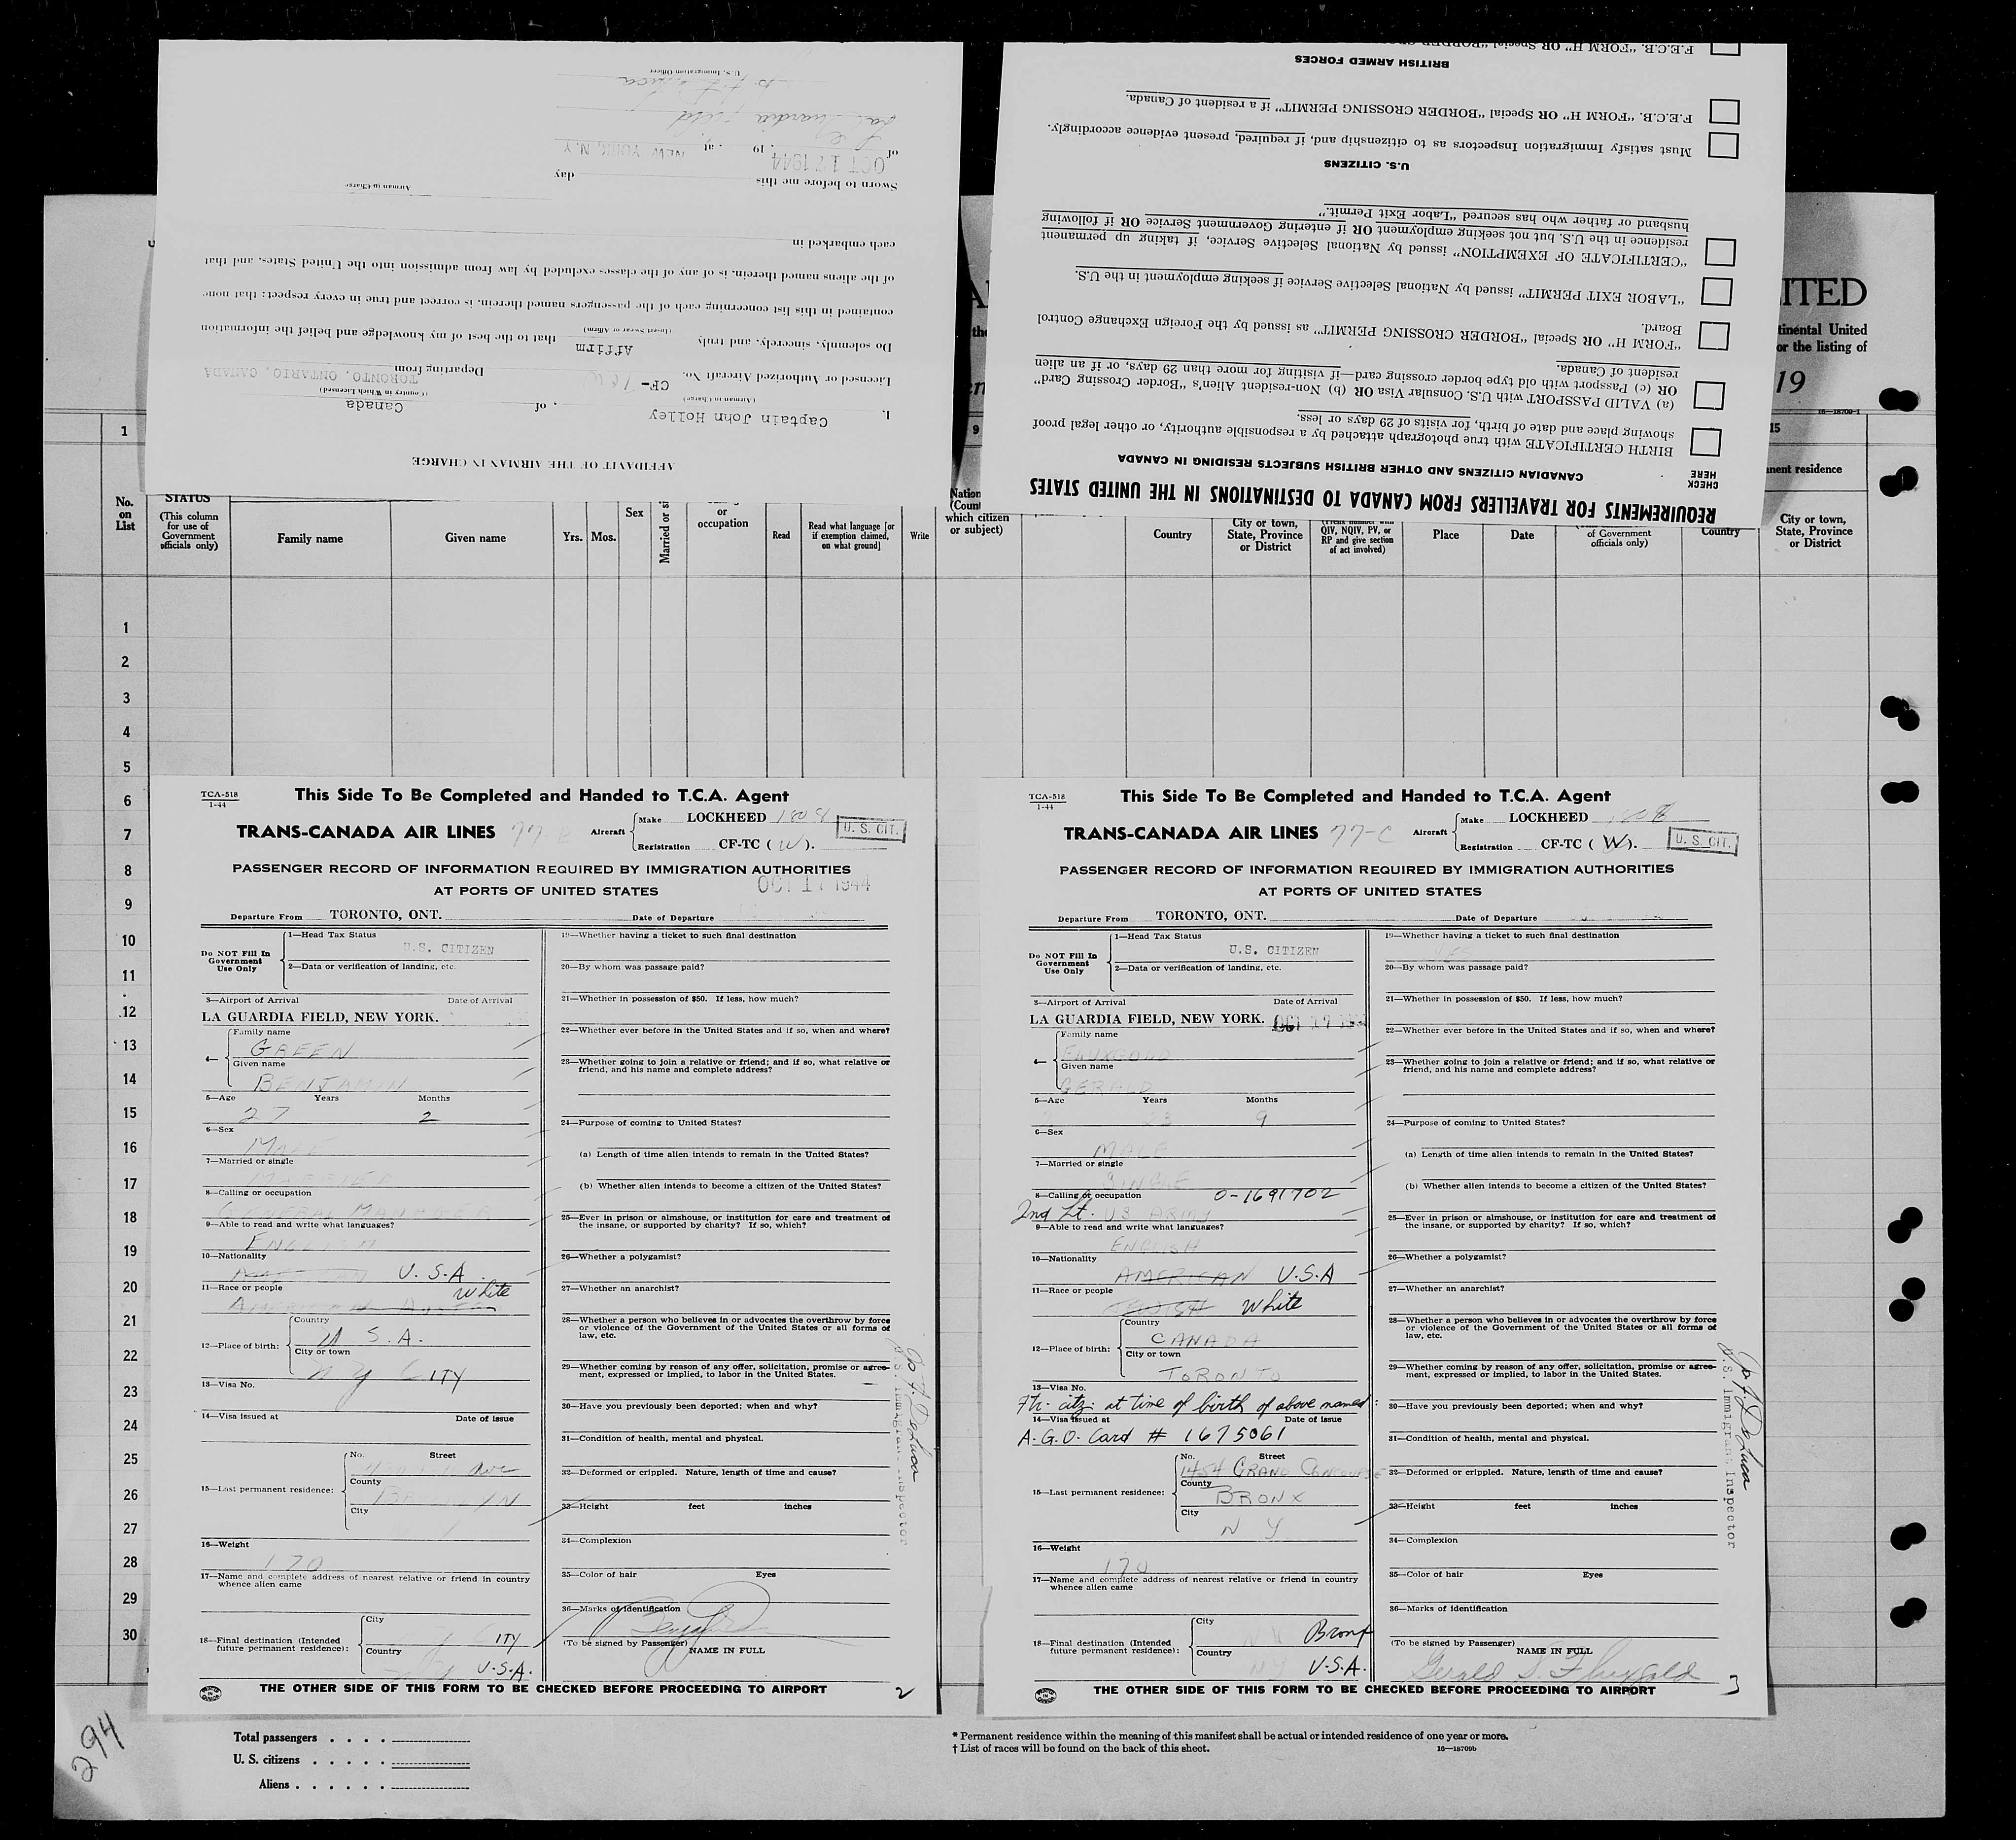 U.S. Immigration Officer
La Guardia Field
of OCT 17 1944, 19 , at NEW YORK, N.Y.
Sworn to before me this day
Airman in Charge
each embarked in
of the aliens named therein, is of any of the classes excluded by law from admission into the United States, and that
contained in this list concerning each of the passengers named therein, is correct and true in every respect; that none
Do solemnly, sincerely, and truly Affirm that to the best of my knowledge and belief the information
(Insert Swear or Affirm)
Licensed or Authorized Aircraft No. CF- Departing from TORONTO, ONTARIO, CANADA
(Airman in Charge) (Country in Which Licensed)
I, Captain John Holley, of Canada
AFFIDAVIT OF THE AIRMAN IN CHARGE
REQUIREMENTS FOR TRAVELLERS FROM CANADA TO DESTINATIONS IN THE UNITED STATES
CHECK
HERE
CANADIAN CITIZENS AND OTHER BRITISH SUBJECTS RESIDING IN CANADA
BIRTH CERTIFICATE with true photograph attached by a responsible authority, or other legal proof
showing place and date of birth, for visits of 29 days or less.
(a) VALID PASSPORT with U.S. Consular Visa OR (b) Non-resident Alien's "Border Crossing Card"
OR (c) Passport with old type border crossing card—if visiting for more than 29 days, or if an alien
resident of Canada.
"FORM H" OR Special "BORDER CROSSING PERMIT" as issued by the Foreign Exchange Control
Board.
"LABOR EXIT PERMIT" issued by National Selective Service if seeking employment in the U.S.
"CERTIFICATE OF EXEMPTION" issued by National Selective Service, if taking up permanent
residence in the U.S. but not seeking employment OR if entering Government Service OR if following
husband or father who has secured "Labor Exit Permit."
U.S. CITIZENS
Must satisfy Immigration Inspectors as to citizenship and, if required, present evidence accordingly.
F.E.C.B. "FORM H" OR Special "BORDER CROSSING PERMIT" if a resident of Canada.
BRITISH ARMED FORCES
F.E.C.B. "FORM H" OR Special "BORDER
ITED
tinental United
or the listing of
19
16—18709-1
1
9
15
nent residence
No.
on
List
STATUS
(This column
for use of
Government
officials only)
Family name
Given name
Yrs.
Mos.
Sex
Married or si
or
occupation
Read
Read what language [or
if exemption claimed,
on what ground]
Write
Nation
(Count
which citizen
or subject)
Country
City or town,
State, Province
or District
QIV, NQIV, PV, or
RP and give section
of act involved)
Place
Date
of Government
officials only)
Country
City or town,
State, Province
or District
1
2
3
4
5
6
7
8
9
10
11
12
13
14
15
16
17
18
19
20
21
22
23
24
25
26
27
28
29
30
TCA-518
1-44
This Side To Be Completed and Handed to T.C.A. Agent
TRANS-CANADA AIR LINES
Aircraft Make LOCKHEED 1808
Registration CF-TC (W).
U.S. CIT.
PASSENGER RECORD OF INFORMATION REQUIRED BY IMMIGRATION AUTHORITIES
AT PORTS OF UNITED STATES
OCT 17 1944
Departure From TORONTO, ONT. Date of Departure
Do NOT Fill In
Government
Use Only
1—Head Tax Status
U.S. CITIZEN
2—Data or verification of landing, etc.
3—Airport of Arrival Date of Arrival
LA GUARDIA FIELD, NEW YORK.
4— Family name
GREEN
Given name
BENJAMIN
5—Age Years Months
27 2
6—Sex
MALE
7—Married or single
MARRIED
8—Calling or occupation
GENERAL MANAGER
9—Able to read and write what languages?
ENGLISH
10—Nationality
U.S.A.
11—Race or people White
12—Place of birth:
Country
U.S.A.
City or town
NY CITY
13—Visa No.
14—Visa issued at Date of issue
15—Last permanent residence:
No. Street
Ave
County
City
16—Weight
170
17—Name and complete address of nearest relative or friend in country
whence alien came
18—Final destination (Intended
future permanent residence):
City
ITY
Country
U.S.A.
19—Whether having a ticket to such final destination
20—By whom was passage paid?
21—Whether in possession of $50. If less, how much?
22—Whether ever before in the United States and if so, when and where?
23—Whether going to join a relative or friend; and if so, what relative or
friend, and his name and complete address?
24—Purpose of coming to United States?
(a) Length of time alien intends to remain in the United States?
(b) Whether alien intends to become a citizen of the United States?
25—Ever in prison or almshouse, or institution for care and treatment of
the insane, or supported by charity? If so, which?
26—Whether a polygamist?
27—Whether an anarchist?
28—Whether a person who believes in or advocates the overthrow by force
or violence of the Government of the United States or all forms of
law, etc.
29—Whether coming by reason of any offer, solicitation, promise or agree-
ment, expressed or implied, to labor in the United States.
30—Have you previously been deported; when and why?
31—Condition of health, mental and physical.
32—Deformed or crippled. Nature, length of time and cause?
33—Height feet inches
34—Complexion
35—Color of hair Eyes
36—Marks of identification
(To be signed by Passenger) NAME IN FULL
THE OTHER SIDE OF THIS FORM TO BE CHECKED BEFORE PROCEEDING TO AIRPORT
2
U.S. Immigrant Inspector
TCA-518
1-44
This Side To Be Completed and Handed to T.C.A. Agent
TRANS-CANADA AIR LINES 77-C
Aircraft Make LOCKHEED 1808
Registration CF-TC (W).
U.S. CIT.
PASSENGER RECORD OF INFORMATION REQUIRED BY IMMIGRATION AUTHORITIES
AT PORTS OF UNITED STATES
Departure From TORONTO, ONT. Date of Departure
Do NOT Fill In
Government
Use Only
1—Head Tax Status
U.S. CITIZEN
2—Data or verification of landing, etc.
3—Airport of Arrival Date of Arrival
LA GUARDIA FIELD, NEW YORK. OCT 17
4— Family name
Given name
GERALD
5—Age Years Months
23 9
6—Sex
MALE
7—Married or single
SINGLE
8—Calling or occupation O-1691702
2nd Lt. US ARMY
9—Able to read and write what languages?
ENGLISH
10—Nationality
AMERICAN U.S.A
11—Race or people
JEWISH White
12—Place of birth:
Country
CANADA
City or town
TORONTO
13—Visa No.
Fth. citz. at time of birth of above named.
14—Visa issued at Date of issue
A.G.O. Card # 1675061
15—Last permanent residence:
No. Street
1454 GRAND CONCOURSE
County
BRONX
City
N Y
16—Weight
170
17—Name and complete address of nearest relative or friend in country
whence alien came
18—Final destination (Intended
future permanent residence):
City
NY Bronx
Country
NY U.S.A.
19—Whether having a ticket to such final destination
YES
20—By whom was passage paid?
21—Whether in possession of $50. If less, how much?
22—Whether ever before in the United States and if so, when and where?
23—Whether going to join a relative or friend; and if so, what relative or
friend, and his name and complete address?
24—Purpose of coming to United States?
(a) Length of time alien intends to remain in the United States?
(b) Whether alien intends to become a citizen of the United States?
25—Ever in prison or almshouse, or institution for care and treatment of
the insane, or supported by charity? If so, which?
26—Whether a polygamist?
27—Whether an anarchist?
28—Whether a person who believes in or advocates the overthrow by force
or violence of the Government of the United States or all forms of
law, etc.
29—Whether coming by reason of any offer, solicitation, promise or agree-
ment, expressed or implied, to labor in the United States.
30—Have you previously been deported; when and why?
31—Condition of health, mental and physical.
32—Deformed or crippled. Nature, length of time and cause?
33—Height feet inches
34—Complexion
35—Color of hair Eyes
36—Marks of identification
(To be signed by Passenger) NAME IN FULL
Gerald S.
THE OTHER SIDE OF THIS FORM TO BE CHECKED BEFORE PROCEEDING TO AIRPORT
3
U.S. Immigrant Inspector
294
Total passengers . . . .
U. S. citizens . . . . .
Aliens . . . . . .
* Permanent residence within the meaning of this manifest shall be actual or intended residence of one year or more.
† List of races will be found on the back of this sheet.
16—18709b